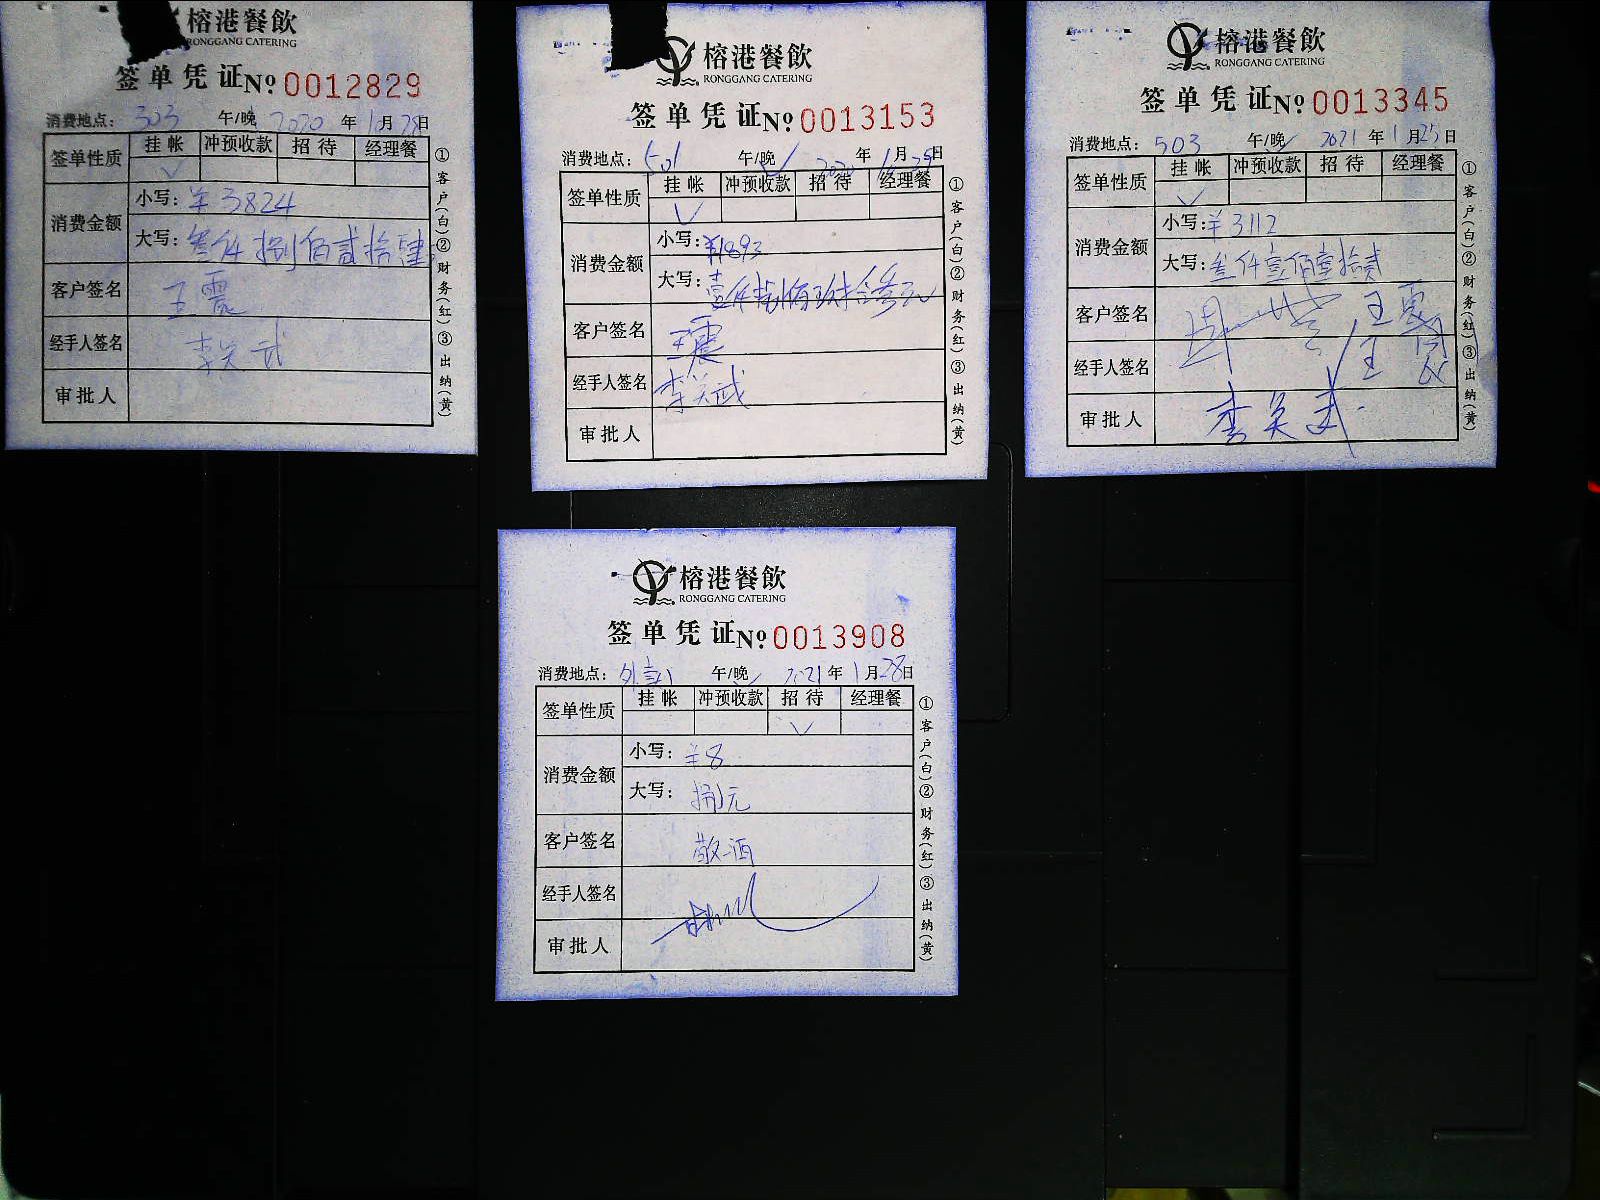 榕港餐飲
RONGGANG CATERING
签单凭证 № 0012829
消费地点：303 午/晚 2020年10月28日
签单性质 挂帐 冲预收款 招待 经理餐
✓
消费金额 小写：¥3824
大写：叁仟捌佰贰拾肆
客户签名 王震
经手人签名 李关武
审批人
①客户(白)②财务(红)③出纳(黄)
榕港餐飲
RONGGANG CATERING
签单凭证 № 0013153
消费地点：501 午/晚✓ 年 月 日
签单性质 挂帐 冲预收款 招待 经理餐
✓
消费金额 小写：¥1893
大写：壹仟捌佰玖拾叁元
客户签名 王震
经手人签名 李关武
审批人
①客户(白)②财务(红)③出纳(黄)
榕港餐飲
RONGGANG CATERING
签单凭证 № 0013345
消费地点：503 午/晚✓ 2021年1月25日
签单性质 挂帐 冲预收款 招待 经理餐
✓
消费金额 小写：¥3112
大写：叁仟壹佰壹拾贰
客户签名
经手人签名
审批人
①客户(白)②财务(红)③出纳(黄)
榕港餐飲
RONGGANG CATERING
签单凭证 № 0013908
消费地点： 午/晚✓ 2021年1月28日
签单性质 挂帐 冲预收款 招待 经理餐
✓
消费金额 小写：¥8
大写：捌元
客户签名 敬酒
经手人签名
审批人
①客户(白)②财务(红)③出纳(黄)